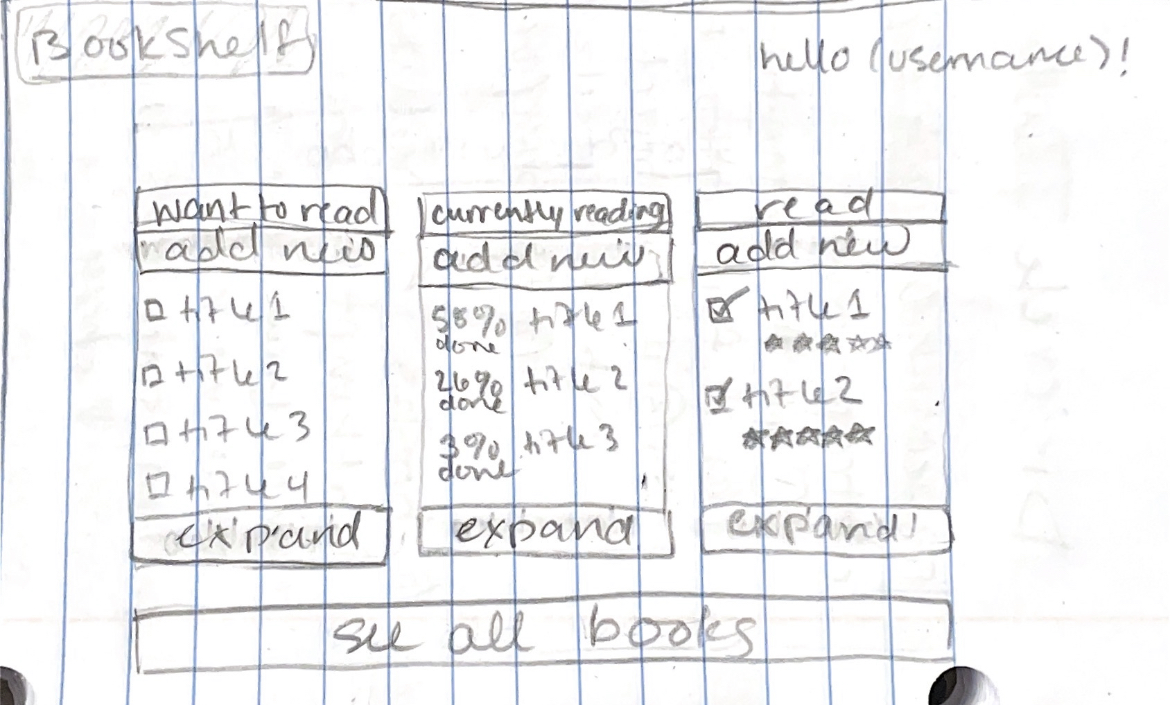 Bookshelf
hello (username)!
want to read
add new
title 1
title 2
title 3
title 4
expand
currently reading
add new
58% title 1
done
26% title 2
done
3% title 3
done
expand
read
add new
title 1
title 2
expand
see all books